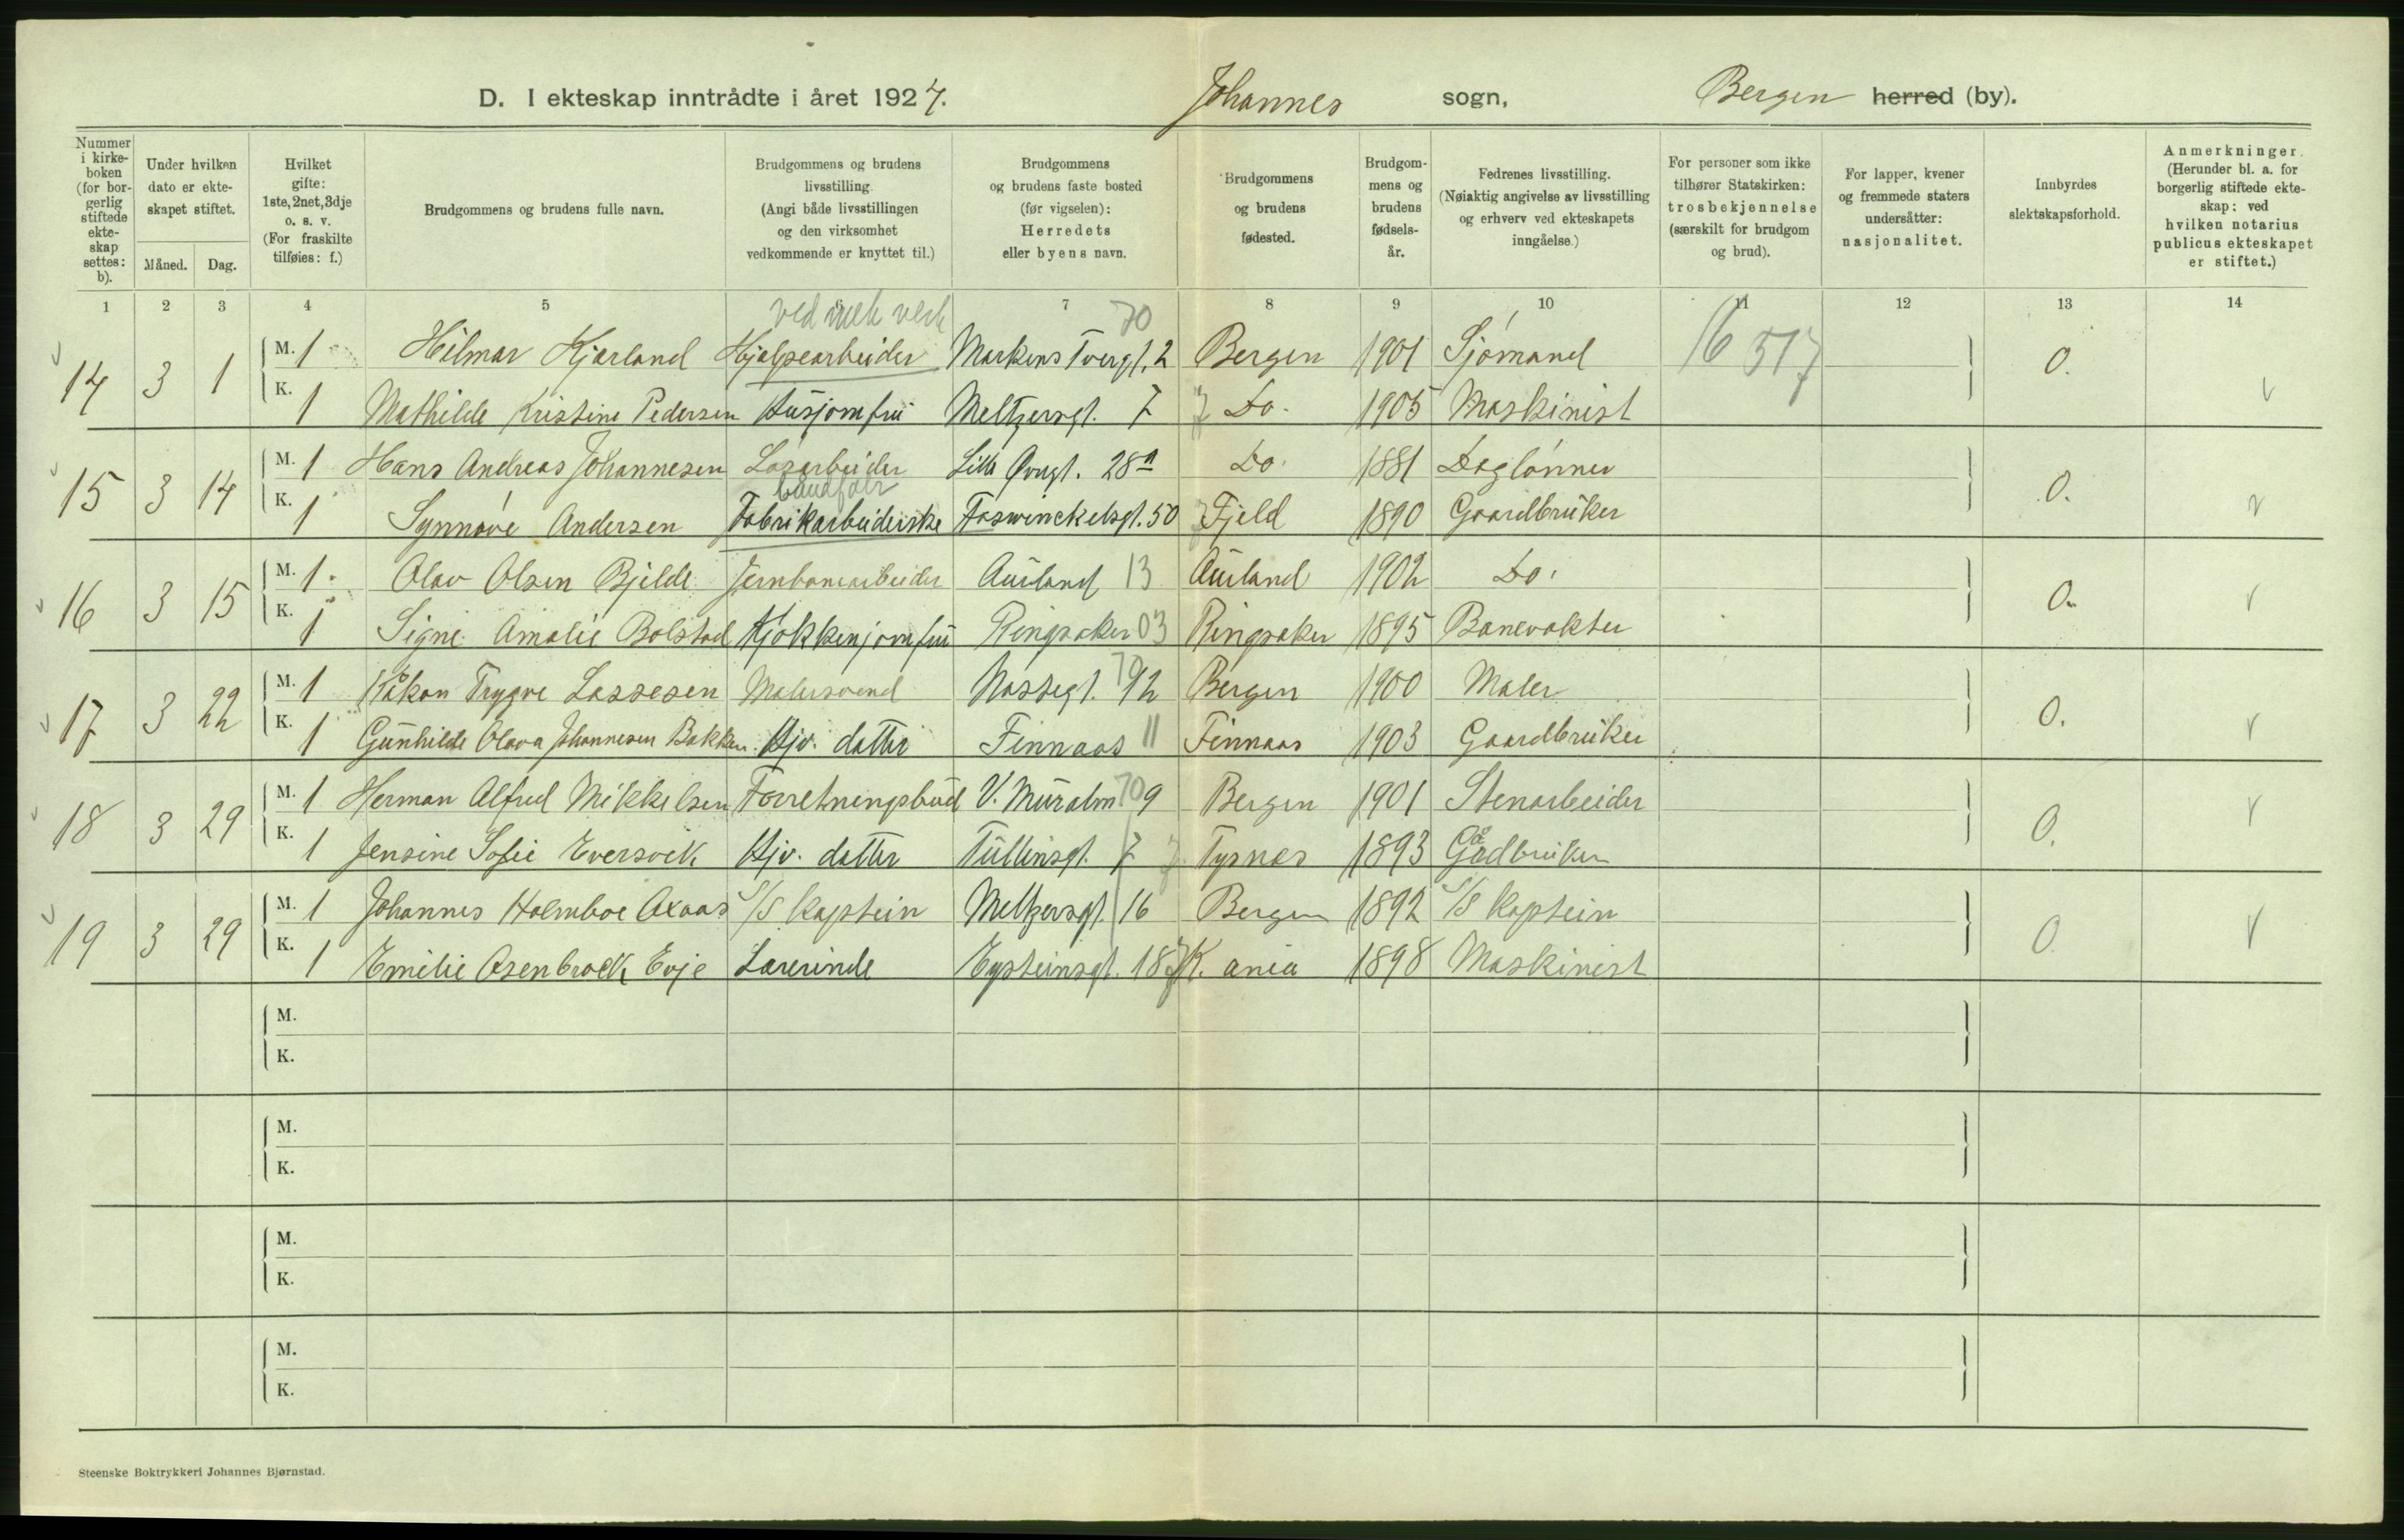 D. I ekteskap inntrådte i året 1924. Johannes sogn, Bergen herred (by).
Nummer i kirkeboken (for borgerlig stiftede ekteskap settes: b).
Under hvilken dato er ekteskapet stiftet.
Måned. Dag.
Hvilket gifte: 1ste, 2net, 3dje o. s. v. (For fraskilte tilføies: f.)
Brudgommens og brudens fulle navn.
Brudgommens og brudens livsstilling. (Angi både livsstillingen og den virksomhet vedkommende er knyttet til.)
Brudgommens og brudens faste bosted (før vigselen): Herredets eller byens navn.
Brudgommens og brudens fødested.
Brudgommens og brudens fødselsår.
Fedrenes livsstilling. (Nøiaktig angivelse av livsstilling og erhverv ved ekteskapets inngåelse.)
For personer som ikke tilhører Statskirken: trosbekjennelse (særskilt for brudgom og brud).
For lapper, kvener og fremmede staters undersåtter: nasjonalitet.
Innbyrdes slektskapsforhold.
Anmerkninger. (Herunder bl. a. for borgerlig stiftede ekteskap: ved hvilken notarius publicus ekteskapet er stiftet.)
1 2 3 4 5 7 8 9 10 11 12 13 14
ved mek verk 70
14 3 1 M. 1 Hilmar Kjærland Hjælpearbeider Markens Tvergt. 2 Bergen 1901 Sjømand 16 517 0.
K. 1 Mathilde Kristine Pedersen Husjomfru Meltzersgt. 7 Do. 1905 Maskinist
15 3 14 M. 1 Hans Andreas Johannesen Løsarbeider Lille Øvregt. 28a Do. 1881 Daglønner 0.
K. 1 Synnøve Andersen Fabrikarbeiderske Foswinckelsgt. 50 Fjeld 1890 Gaardbruker
16 3 15 M. 1 Olav Olsen Bjelde Jernbanearbeider Aurland 13 Aurland 1902 Do. 0.
K. 1 Signe Amalie Bolstad Kjøkkenjomfru Ringsaker 03 Ringsaker 1895 Banevokter
17 3 22 M. 1 Håkon Trygve Lassesen Malersvend Nøstegt. 70 92 Bergen 1900 Maler 0.
K. 1 Gunhilde Olava Johannesen Bakken Hjv. datter Finnaas 11 Finnaas 1903 Gaardbruker
18 3 29 M. 1 Herman Alfred Mikkelsen Forretningsbud V. Muralm 70 9 Bergen 1901 Stenarbeider 0.
K. 1 Jensine Sofie Eversvik Hjv. datter Tullinsgt. 7 Tysnes 1893 Gårdbruker
19 3 29 M. 1 Johannes Holmboe Axaas S/S Kaptein Meltzersgt. 16 Bergen 1892 S/S Kaptein 0.
K. 1 Emilie Asenbrock Evje Lærerinde Eysteinsgt. 18 K. ania 1898 Maskinist
M.
K.
M.
K.
M.
K.
M.
K.
Steenske Boktrykkeri Johannes Bjørnstad.